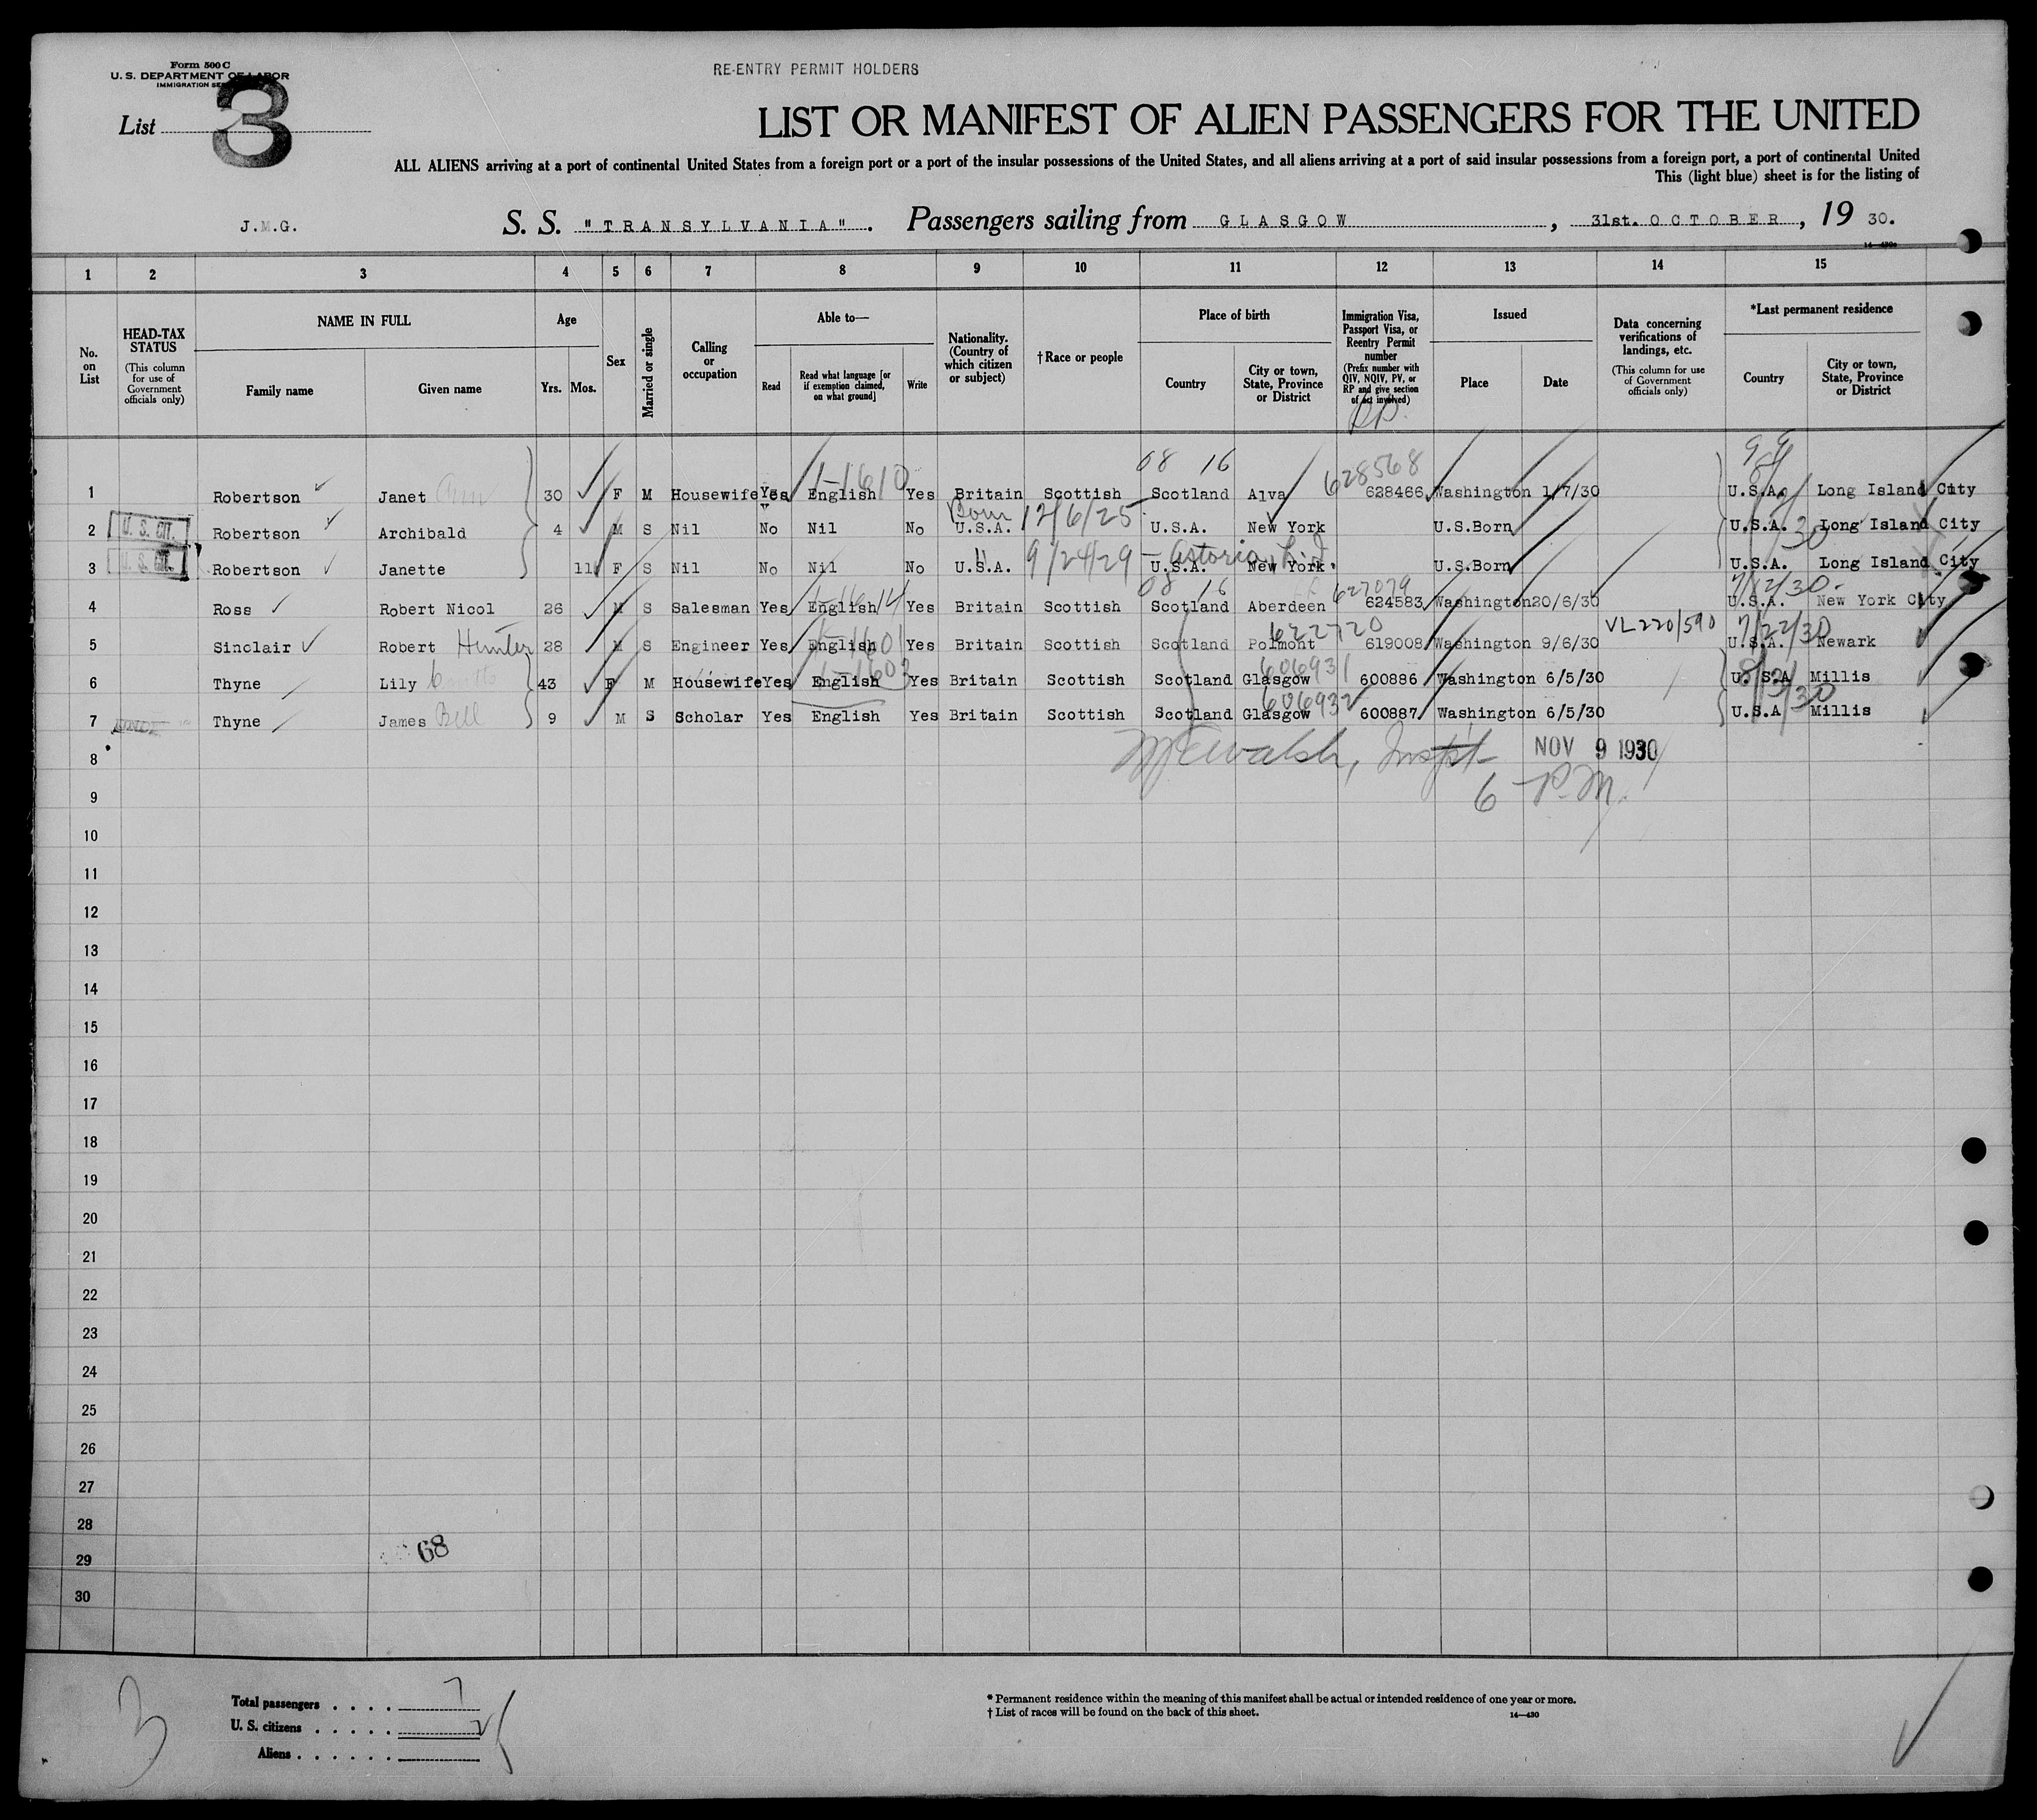 Form 500 C
U. S. DEPARTMENT OF LABOR
IMMIGRATION
RE-ENTRY PERMIT HOLDERS
List 3
LIST OR MANIFEST OF ALIEN PASSENGERS FOR THE UNITED
ALL ALIENS arriving at a port of continental United States from a foreign port or a port of the insular possessions of the United States, and all aliens arriving at a port of said insular possessions from a foreign port, a port of continental United
This (light blue) sheet is for the listing of
J.M.G. S. S. "TRANSYLVANIA". Passengers sailing from GLASGOW, 31st. OCTOBER, 19 30.
1 2 3 4 5 6 7 8 9 10 11 12 13 14 15
No. on List
HEAD-TAX STATUS (This column for use of Government officials only)
NAME IN FULL
Family name Given name
Age
Yrs. Mos.
Sex
Married or single
Calling or occupation
Able to—
Read Read what language [or if exemption claimed, on what ground] Write
Nationality. (Country of which citizen or subject)
†Race or people
Place of birth
Country City or town, State, Province or District
Immigration Visa, Passport Visa, or Reentry Permit number (Prefix number with QIV, NQIV, PV, or RP and give section of act involved)
RP.
Issued
Place Date
Data concerning verifications of landings, etc. (This column for use of Government officials only)
*Last permanent residence
Country City or town, State, Province or District
08 16 628568
1 Robertson Janet 30 F M Housewife Yes English 1-1610 Yes Britain Scottish Scotland Alva 628466 Washington 1/7/30 U.S.A. Long Island City
Born 12/6/25
2 U.S. CIT. Robertson Archibald 4 M S Nil No Nil No U.S.A. U.S.A. New York U.S.Born U.S.A. Long Island City
" 9/24/29 - Astoria, L.I.
3 U.S. CIT. Robertson Janette 11 F S Nil No Nil No U.S.A. U.S.A. New York. U.S.Born U.S.A. Long Island City
08 16 627079 7/12/30-
4 Ross Robert Nicol 26 M S Salesman Yes English Yes Britain Scottish Scotland Aberdeen 624583 Washington 20/6/30 U.S.A. New York City
622720 VL220/590 7/22/30
5 Sinclair Robert Hunter 28 M S Engineer Yes English Yes Britain Scottish Scotland Polmont 619008 Washington 9/6/30 U.S.A. Newark
606931
6 Thyne Lily 43 F M Housewife Yes English Yes Britain Scottish Scotland Glasgow 600886 Washington 6/5/30 U.S.A Millis
606932
7 Thyne James Bell 9 M S Scholar Yes English Yes Britain Scottish Scotland Glasgow 600887 Washington 6/5/30 U.S.A Millis
8 Inspt NOV 9 1930
9 6 P.M.
10
11
12
13
14
15
16
17
18
19
20
21
22
23
24
25
26
27
28
29 68
30
3
Total passengers 7
U. S. citizens 2
Aliens
* Permanent residence within the meaning of this manifest shall be actual or intended residence of one year or more.
† List of races will be found on the back of this sheet.
14—430